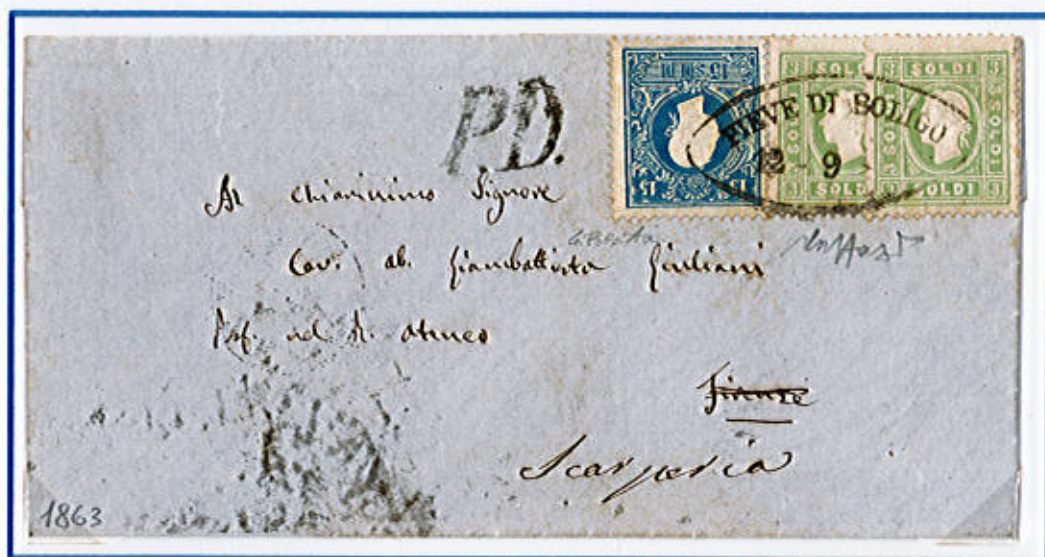 P.D.
15 SOLDI
15
SOLDI
3
SOLDI
SOLDI
3 SOLDI 3
SOLDI
SOLDI
3 SOLDI 3
PIEVE DI SOLIGO
12 - 9
Al Chiarissimo Signore
Cav. ab. Giambattista Giuliani
Prof. nel R. Ateneo
Firenze
Scarperia
1863